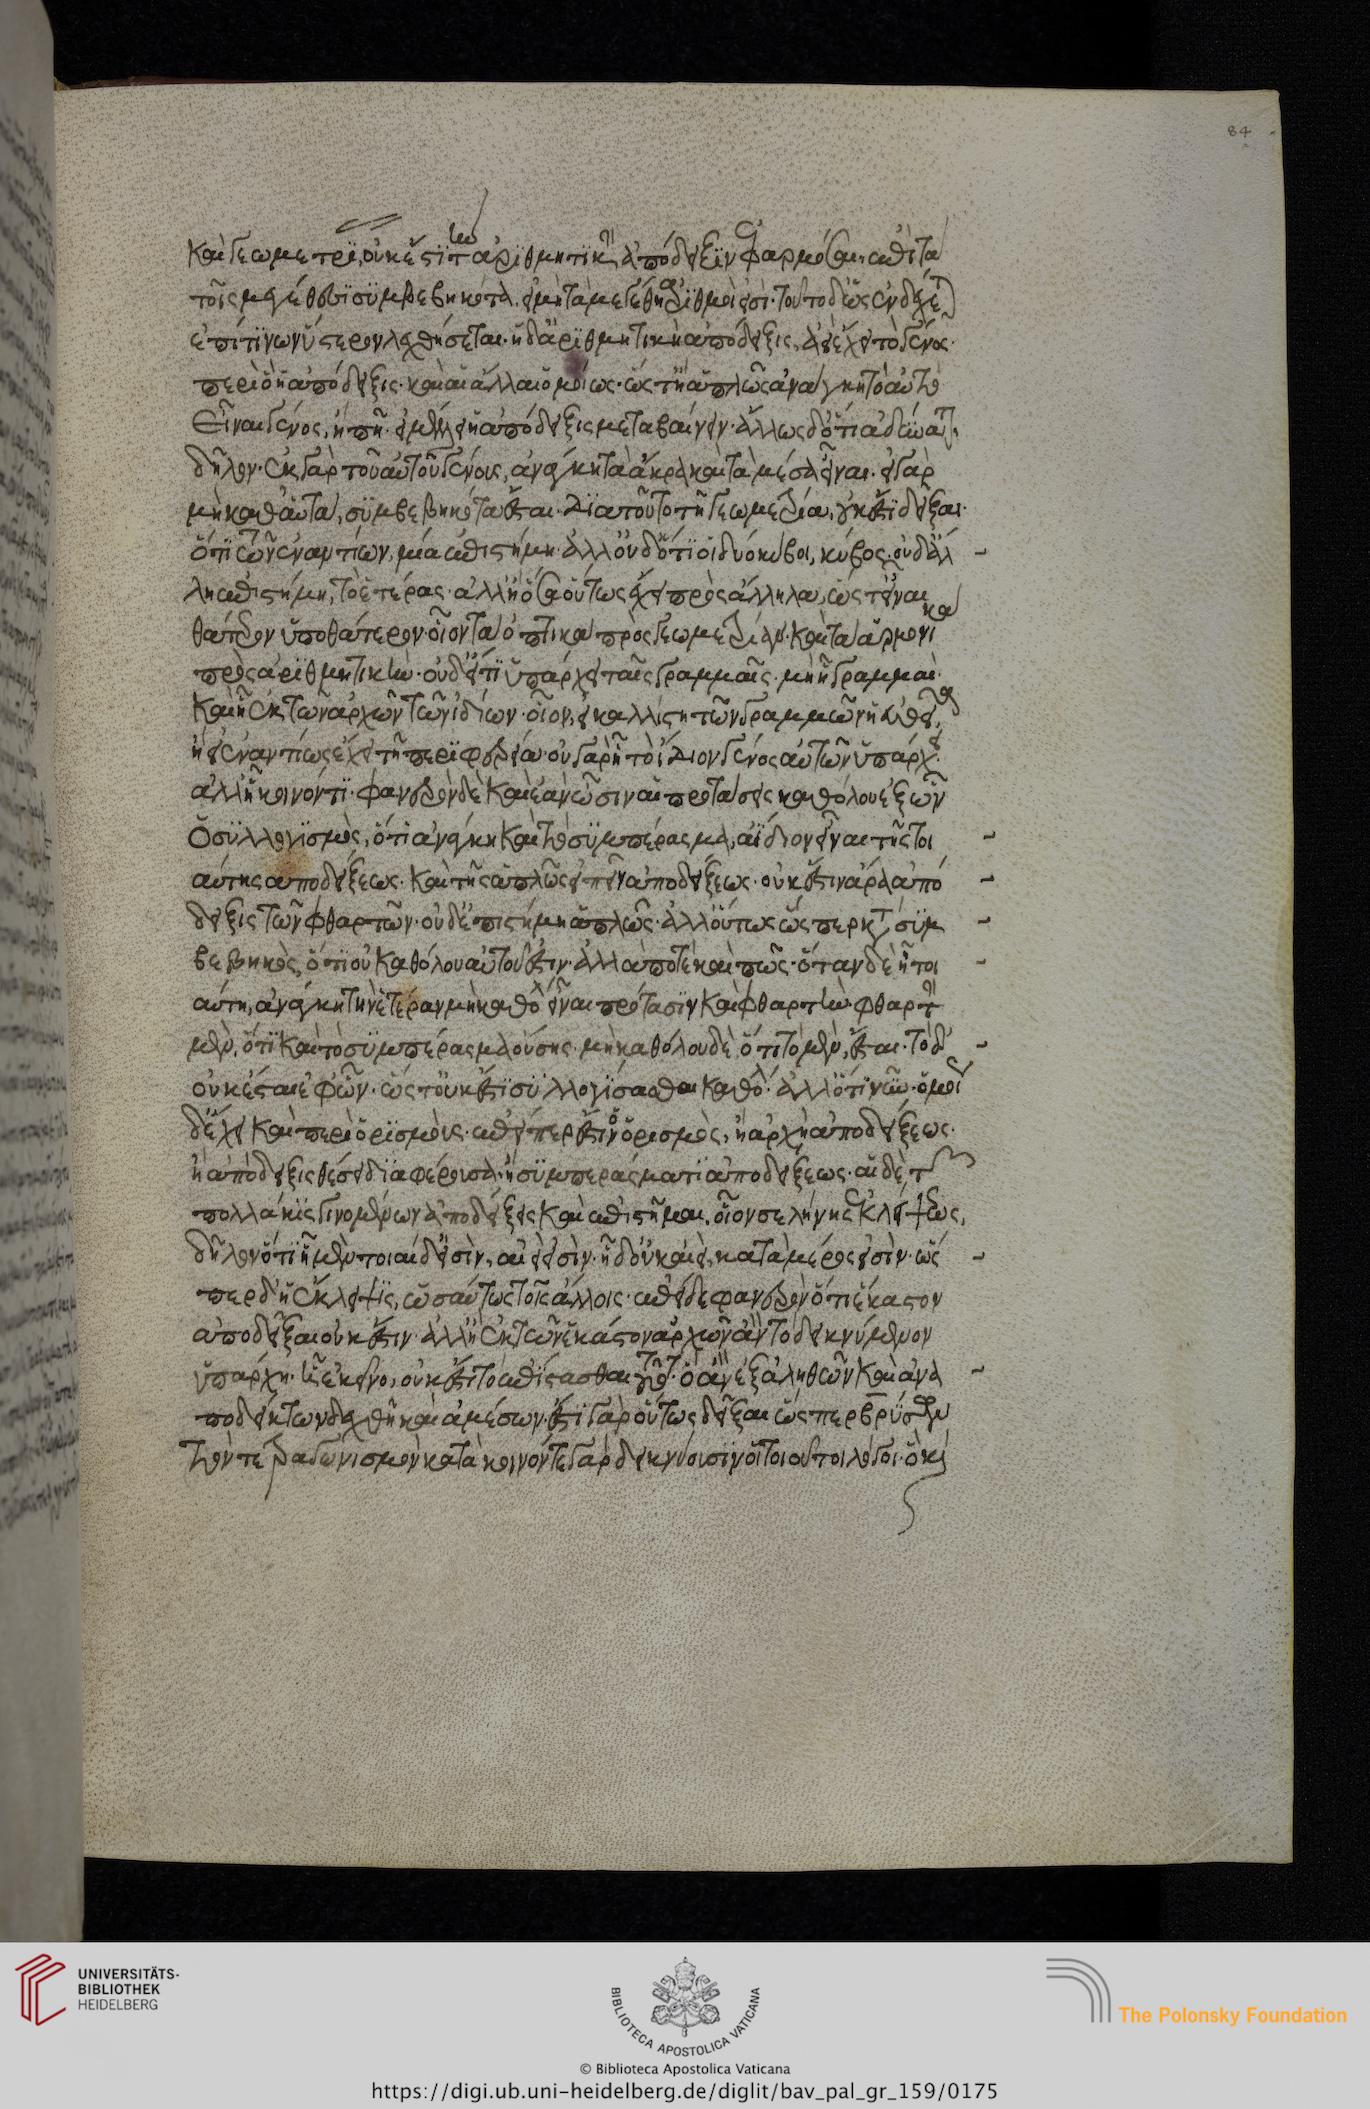 84
καὶ γεωμετρί, οὐκ ἔστι τὴν ἀριθμητικὴν ἀπόδειξιν ἐφαρμόσαι ἐπὶ τὰ
τοῖς μεγέθεσι συμβεβηκότα. εἰ μὴ τὰ μεγέθη ἀριθμοί εἰσι. τοῦτο δ' ὡς ἐνδέχεται
ἐπί τινων ὕστερον λεχθήσεται. ἡ δ' ἀριθμητικὴ ἀπόδειξις, ἀεὶ ἔχει τὸ γένος
περὶ ὃ ἡ ἀπόδειξις. καὶ αἱ ἄλλαι ὁμοίως. ὥστ' ἢ ἁπλῶς ἀνάγκη τὸ αὐτὸ
εἶναι γένος, ἢ πῇ. εἰ μέλλει ἡ ἀπόδειξις μεταβαίνειν. ἄλλως δ' ὅτι ἀδύνατον,
δῆλον. ἐκ γὰρ τοῦ αὐτοῦ γένους, ἀνάγκη τὰ ἄκρα καὶ τὰ μέσα εἶναι. εἰ γὰρ
μὴ καθ' αὑτά, συμβεβηκότα ἔσται. διὰ τοῦτο τῇ γεωμετρίᾳ, οὐκ ἔστι δεῖξαι.
ὅτι τῶν ἐναντίων, μία ἐπιστήμη. ἀλλ' οὐδ' ὅτι οἱ δύο κύβοι, κύβος. οὐδ' ἄλ
λη ἐπιστήμη, τὸ ἑτέρας. ἀλλ' ἢ ὅσα οὕτως ἔχει πρὸς ἄλληλα, ὥστ' εἶναι
θάτερον ὑπὸ θάτερον. οἷον τὰ ὀπτικὰ πρὸς γεωμετρίαν. καὶ τὰ ἁρμονικὰ
πρὸς ἀριθμητικὴν. οὐδ' εἴ τι ὑπάρχει ταῖς γραμμαῖς. μὴ ᾗ γραμμαὶ.
καὶ ᾗ ἐκ τῶν ἀρχῶν τῶν ἰδίων. οἷον, εἰ καλλίστη τῶν γραμμῶν ἡ εὐθεῖα,
ἢ εἰ ἐναντίως ἔχει τῇ περιφερείᾳ. οὐ γὰρ ᾗ τὸ ἴδιον γένος αὐτῶν ὑπάρχει.
ἀλλ' ᾗ κοινόν τι. φανερὸν δὲ καὶ ἐὰν ὦσιν αἱ προτάσεις καθόλου ἐξ ὧν
ὁ συλλογισμὸς, ὅτι ἀνάγκη καὶ τὸ συμπέρασμα, ἀΐδιον εἶναι τῆς τοι
αύτης ἀποδείξεως. καὶ τῆς ἁπλῶς εἰπεῖν ἀποδείξεως. οὐκ ἔστιν ἄρα ἀπό
δειξις τῶν φθαρτῶν. οὐδ' ἐπιστήμη ἁπλῶς. ἀλλ' οὕτως ὥσπερ κατὰ συμ
βεβηκὸς, ὅτι οὐ καθόλου αὐτοῦ ἔστιν. ἀλλά ποτὲ καὶ πῶς. ὅταν δὲ ᾖ τοι
αύτη, ἀνάγκη τὴν ἑτέραν μὴ καθόλου εἶναι πρότασιν καὶ φθαρτὴν. φθαρτὴν
μὲν, ὅτι καὶ τὸ συμπέρασμα οὔσης. μὴ καθόλου δὲ, ὅτι τὸ μὲν, ἔσται. τὸ δ'
οὐκ ἔσται ἐφ' ὧν. ὥστ' οὐκ ἔστι συλλογίσασθαι καθόλου. ἀλλ' ὅτι νῦν. ὁμοί
δ' ἔχει καὶ περὶ ὁρισμοὺς. ἐπείπερ ἔστιν ὁ ὁρισμὸς, ἢ ἀρχὴ ἀποδείξεως.
ἢ ἀπόδειξις θέσει διαφέρουσα. ἢ συμπέρασμά τι ἀποδείξεως. αἱ δὲ, τῶν
πολλάκις γινομένων ἀποδείξεις καὶ ἐπιστῆμαι. οἷον σελήνης ἐκλείψεως,
δῆλον ὅτι ᾗ μὲν τοιαίδ' εἰσὶν, ἀεὶ εἰσὶν. ᾗ δ' οὐκ ἀεὶ, κατὰ μέρος εἰσὶν. ὥσ
περ δ' ἡ ἔκλειψις, ὡσαύτως τοῖς ἄλλοις. ἐπεὶ δὲ φανερὸν ὅτι ἕκαστον
ἀποδεῖξαι οὐκ ἔστιν. ἀλλ' ἢ ἐκ τῶν ἑκάστου ἀρχῶν ἂν τὸ δεικνύμενον
ὑπάρχῃ. ᾗ ἐκεῖνο, οὐκ ἔστι τὸ ἐπίστασθαι τοῦτο. ὃ ἂν ἐξ ἀληθῶν καὶ ἀνα
ποδείκτων δειχθῇ καὶ ἀμέσων. ἔστι γὰρ οὕτως δεῖξαι ὥσπερ βρύσων
τὸν τετραγωνισμὸν κατὰ κοινόν τε γὰρ δεικνύουσιν οἱ τοιοῦτοι λόγοι. ὃ καὶ
UNIVERSITÄTS-
BIBLIOTHEK
HEIDELBERG
BIBLIOTECA APOSTOLICA VATICANA
The Polonsky Foundation
© Biblioteca Apostolica Vaticana
https://digi.ub.uni-heidelberg.de/diglit/bav_pal_gr_159/0175